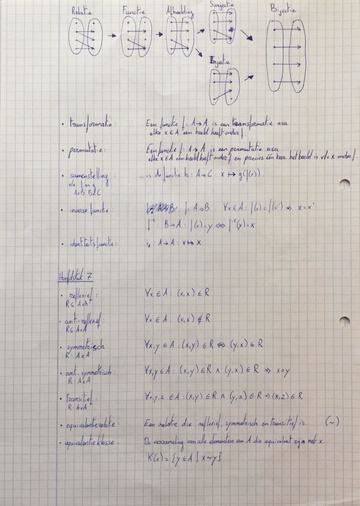 Relatie Functie Afbeelding Surjectie Bijectie
Injectie
• transformatie: Een functie f: A→A is een transformatie van
elke x∈A een beeld heeft onder f
• permutatie: Een functie f: A→A is een permutatie van
elke x∈A een beeld heeft onder f en precies één keer het beeld is v/e x onder f
• samenstelling is de functie h: A→C x↦g(f(x)).
• inverse functie f: A→B ∀x∈A: f(x)=f(x') ⇒ x=x'
f⁻¹ B→A: f(x)=y ⇔ f⁻¹(y)=x
• identiteitsfunctie: A→A: x↦x
Hoofdstuk 7
• reflexief: ∀x∈A: (x,x)∈R
R⊆AxA
• anti-reflexief ∀x∈A: (x,x)∉R
R⊆AxA
• symmetrisch ∀x,y∈A: (x,y)∈R ⇔ (y,x)∈R
R⊆AxA
• anti symmetrisch: ∀x,y∈A: (x,y)∈R ∧ (y,x)∈R ⇒ x=y
R⊆AxA
• transitief ∀x,y,z∈A: (x,y)∈R ∧ (y,z)∈R ⇒ (x,z)∈R
R⊆AxA
• equivalentierelatie: Een relatie die reflexief, symmetrisch en transitief is. (~)
• equivalentieklasse: De verzameling van alle elementen van A die equivalent zijn met x.
K(x) = {y∈A | x~y}